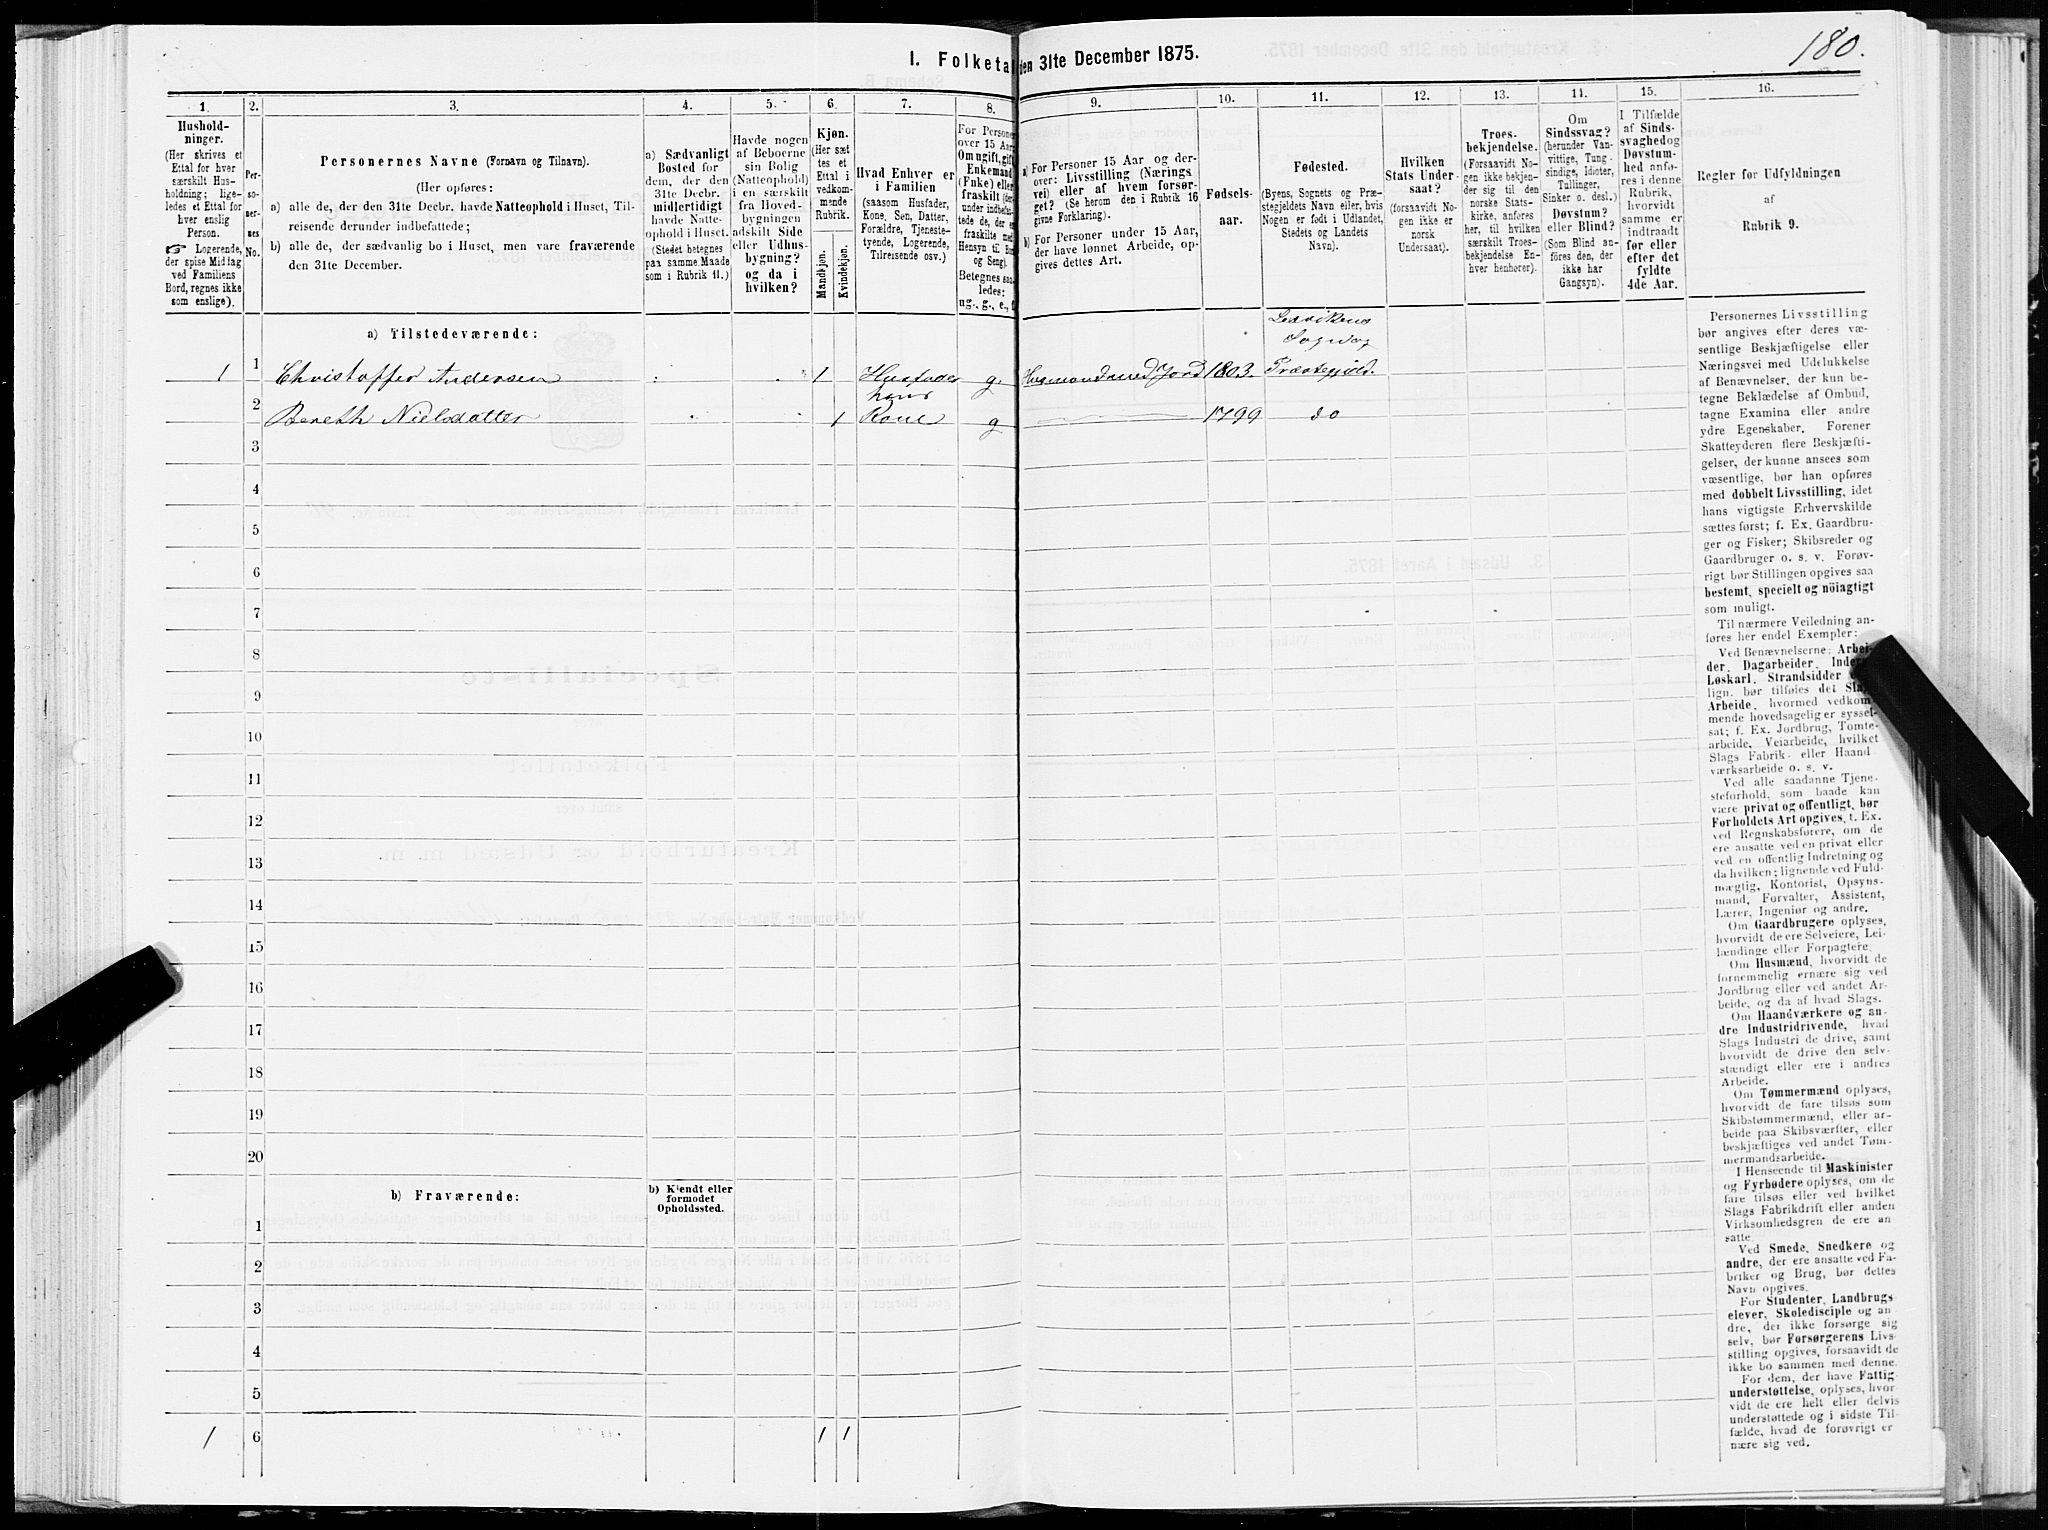 180.
I. Folketal den 31te December 1875.
1. 2. 3. 4. 5. 6. 7. 8. 9. 10. 11. 12. 13. 14. 15. 16.
Hushold-
ninger.
(Her skrives et
Ettal for hver
særskilt Hus-
holdning; lige-
ledes et Ettal for
hver enslig
Person.
☞ Logerende,
der spise Middag
ved Familiens
Bord, regnes ikke
som enslige).
Per-
so-
ner-
nes
No.
Personernes Navne (Fornavn og Tilnavn).
(Her opføres:
a) alle de, der den 31te Decbr. havde Natteophold i Huset, Til-
reisende derunder indbefattede;
b) alle de, der sædvanlig bo i Huset, men vare fraværende
den 31te December.
a) Sædvanligt
Bosted for
dem, der den
31te Decbr.
midlertidigt
havde Natte-
ophold i Huset.
(Stedet betegnes
paa samme Maade
som i Rubrik 11.)
Havde nogen
af Beboerne
sin Bolig
(Natteophold)
i en særskilt
fra Hoved-
bygningen
adskilt Side
eller Udhus-
bygning?
og da i
hvilken?
Kjøn.
(Her sæt
tes et
Ettal i
vedkom-
mende
Rubrik.
Mandkjøn.
Kvindekjøn.
Hvad Enhver er
i Familien
(saasom Husfader,
Kone, Søn, Datter,
Forældre, Tjeneste-
tyende, Logerende,
Tilreisende osv.)
For Personer
over 15 Aar:
Om ugift, gift,
Enkemand
(Enke) eller
fraskilt (der-
under indbefat-
tede de, der er
fraskilte med
Hensyn til Bord
og Seng).
Betegnes saa-
ledes:
ug., g., e., f.
a) For Personer 15 Aar og der-
over: Livsstilling (Nærings
vei) eller af hvem forsør-
get? (Se herom den i Rubrik 16
givne Forklaring).
b) For Personer under 15 Aar,
der have lønnet Arbeide, op-
gives dettes Art.
Fødsels-
aar.
Fødested.
(Byens, Sognets og Præ-
stegjeldets Navn eller, hvis
Nogen er født i Udlandet,
Stedets og Landets
Navn).
Hvilken
Stats Under-
saat?
(forsaavidt No-
gen ikke er
norsk
Undersaat).
Troes-
bekjendelse.
(Forsaavidt No-
gen ikke bekjen-
der sig til den
norske Stats-
kirke, anføres
her, til hvilken
særskilt Troes-
bekjendelse En-
hver henhører).
Om
Sindssvag?
(herunder Van-
vittige, Tung-
sindige, Idioter,
Tullinger,
Sinker o. desl.)
Døvstum?
eller Blind?
(Som Blind an-
föres den, der
ikke har
Gangsyn).
I Tilfælde
af Sinds-
svaghedog
Døvstum-
hed anfø-
res i denne
Rubrik,
hvorvidt
samme er
indtraadt
før eller
efter det
fyldte
4de Aar.
Regler for Udfyldningen
af
Rubrik 9.
a) Tilstedeværende:
Ledvikens
Sogn og
1 1 Christoffer Andersen 1 Husfader g. Husmand med Jord 1803. Præstegjeld.
hans
2 Bereth Nielsdatter 1 Kone g 1799 do
3
4
5
6
7
8
9
10
11
12
13
14
15
16
17
18
19
20
b) Fraværende:
b) Kjendt eller
formodet
Opholdssted.
1
2
3
4
5
6
1 1 1
Personernes Livsstilling
bør angives efter deres væ-
sentlige Beskjæftigelse eller
Næringsvei med Udelukkelse
af Benævnelser, der kun be-
tegne Beklædelse af Ombud,
tagne Examina eller andre
ydre Egenskaber. Forener
Skatteyderen flere Beskjæfti-
gelser, der kunne ansees som
væsentlige, bør han opføres
med dobbelt Livsstilling, idet
hans vigtigste Erhvervskilde
sættes først; f. Ex. Gaardbru-
ger og Fisker; Skibsreder og
Gaardbruger o. s. v. Forøv-
rigt bør Stillingen opgives saa
bestemt, specielt og nöiagtigt
som muligt.
Til nærmere Veiledning an-
føres her endel Exempler:
Ved Benævnelserne: Arbei-
der, Dagarbeider, Inder-
Løskarl, Strandsidder
lign. bør tilføies det Slags
Arbeide, hvormed vedkom-
mende hovedsagelig er syssel-
sat; f. Ex. Jordbrug, Tomte-
arbeide, Veiarbeide, hvilket
Slags Fabrik- eller Haand-
værksarbeide o. s. v.
Ved alle saadanne Tjene-
steforhold, som baade kan
være privat og offentligt, bør
Forholdets Art opgives, t. Ex.
ved Regnskabsførere, om de
ere ansatte ved en privat eller
ved en offentlig Indretning og
da hvilken; lignende ved Fuld-
mægtig, Kontorist, Opsyns-
mand, Forvalter, Assistent,
Lærer, Ingeniør og andre.
Om Gaardbrugere oplyses,
hvorvidt de ere Selveiere, Lei-
lændinge eller Forpagtere.
Om Husmænd, hvorvidt de
fornemmelig ernære sig ved
Jordbrug eller ved andet Ar-
beide, og da af hvad Slags.
Om Haandværkere og an-
dre Industridrivende, hvad
Slags Industri de drive, samt
hvorvidt de drive den selv-
stændigt eller ere i andres
Arbeide.
Om Tømmermænd oplyses,
hvorvidt de fare tilsøs som
Skibstømmermænd, eller ar-
beide paa Skibsværfter, eller
beskjæftiges ved andet Tøm-
mermandsarbeide.
I Henseende til Maskinister
og Fyrbødere oplyses, om de
fare tilsøs eller ved hvilket
Slags Fabrikdrift eller anden
Virksomhedsgren de ere an
satte.
Ved Smede, Snedkere og
andre, der ere ansatte ved Fa-
briker og Brug, bør dettes
Navn opgives.
For Studenter, Landbrugs-
elever, Skoledisciple og an-
dre, der ikke forsørge sig
selv, bør Forsørgerens Livs-
stilling opgives, forsaavidt de
ikke bo sammen med denne.
For dem, der have Fattig-
understøttelse, oplyses, hvor-
vidt de ere helt eller delvis
understøttede og i sidste Til-
fælde, hvad de forøvrigt er
nære sig ved.